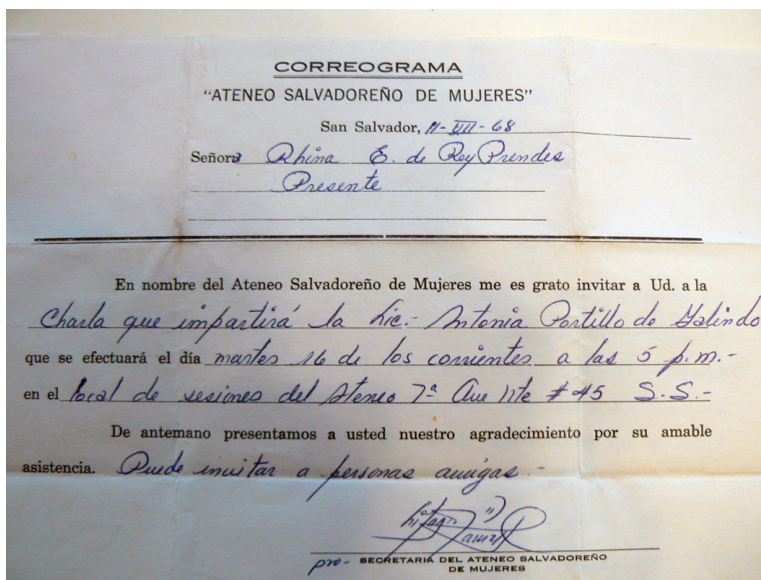 CORREOGRAMA
"ATENEO SALVADOREÑO DE MUJERES"
San Salvador, 11-VII-68
Señora Rhina E. de Rey Prendes
Presente
En nombre del Ateneo Salvadoreño de Mujeres me es grato invitar a Ud. a la
Charla que impartirá la Lic.- Antonia Portillo de Galindo
que se efectuará el día martes 16 de los corrientes a las 5 p.m.-
en el local de sesiones del Ateneo 7ª Ave Nte # 45 S.S.-
De antemano presentamos a usted nuestro agradecimiento por su amable
asistencia. Puede invitar a personas amigas.-
pro- SECRETARIA DEL ATENEO SALVADOREÑO
DE MUJERES